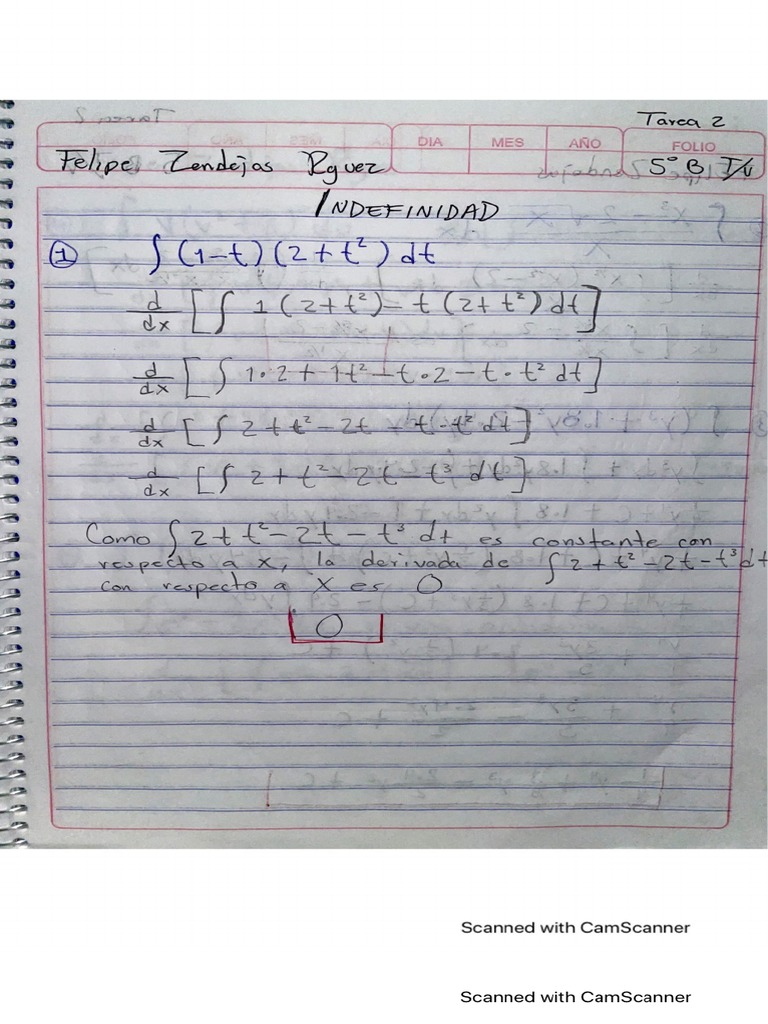 Tarea 2
DIA MES AÑO FOLIO
Felipe Zendejas Rguez 5° B T/V
INDEFINIDAD
① ∫ (1-t) (2+t²) dt
d/dx [∫ 1(2+t²) - t(2+t²) dt]
d/dx [∫ 1•2 + 1t² - t•2 - t•t² dt]
d/dx [∫ 2+t² - 2t - t·t² dt]
d/dx [∫ 2+t² - 2t - t³ dt]
Como ∫ 2+t² - 2t - t³ dt es constante con
respecto a x, la derivada de ∫ 2+t² - 2t - t³ dt
con respecto a X es 0
0
Scanned with CamScanner
Scanned with CamScanner